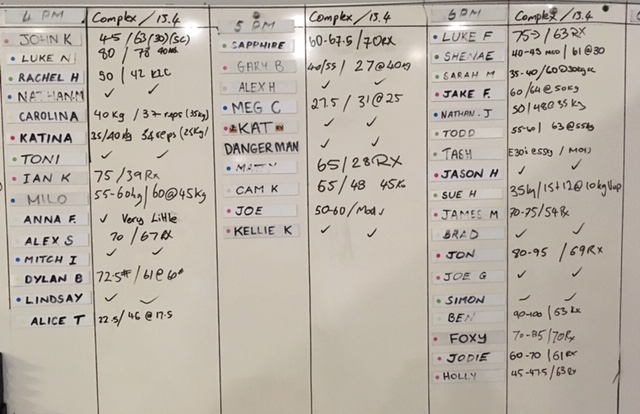 4 PM Complex / 15.4
JOHN K 45 / 63 (30) (SC)
LUKE N 80 / 78
RACHEL H 50 / 42 KLC
NATHAN M ✓ ✓
CAROLINA 40 Kg / 37 reps (35kg)
KATINA 35/40 kg 34 reps (25kg)
TONI ✓ ✓
IAN K 75 / 39 RX
MILO 55-60kg / 60@45kg
ANNA F. ✓ Very Little
ALEX S 70 / 67 RX
MITCH I ✓ ✓
DYLAN B 72.5# / 61@60#
LINDSAY ✓ ✓
ALICE T 22.5 / 46 @ 17.5
5 PM Complex / 15.4
SAPPHIRE 60-67.5 / 70RX
GARY B 40/55 / 27@40kg
ALEX H ✓ ✓
MEG C 27.5 / 31@25
KAT ✓ ✓
DANGERMAN ✓ ✓
MATTY 65 / 28RX
CAM K 65 / 48 45kg
JOE 50-60 / Mod ✓
KELLIE K ✓ ✓
6 PM Complex / 15.4
LUKE F 75 / 63 RX
SHENAE 40-43 mod / 61@30
SARAH M 35-40 / 60@30kg
JAKE F. 60 / 64@50kg
NATHAN.J 50 / 48@35kg
TODD 55-60 / 63@55kg
TASH
JASON H ✓ ✓
SUE H 35kg / 15+12@10kg
JAMES M 70-75 / 54 Rx
BRAD ✓ ✓
JON 80-95 / 69Rx
JOE G ✓ ✓
SIMON ✓ ✓
BEN 90-100 / 63 Rx
FOXY 70-85 / 70Rx
JODIE 60-70 / 61RX
HOLLY 45-47.5 / 63Rx